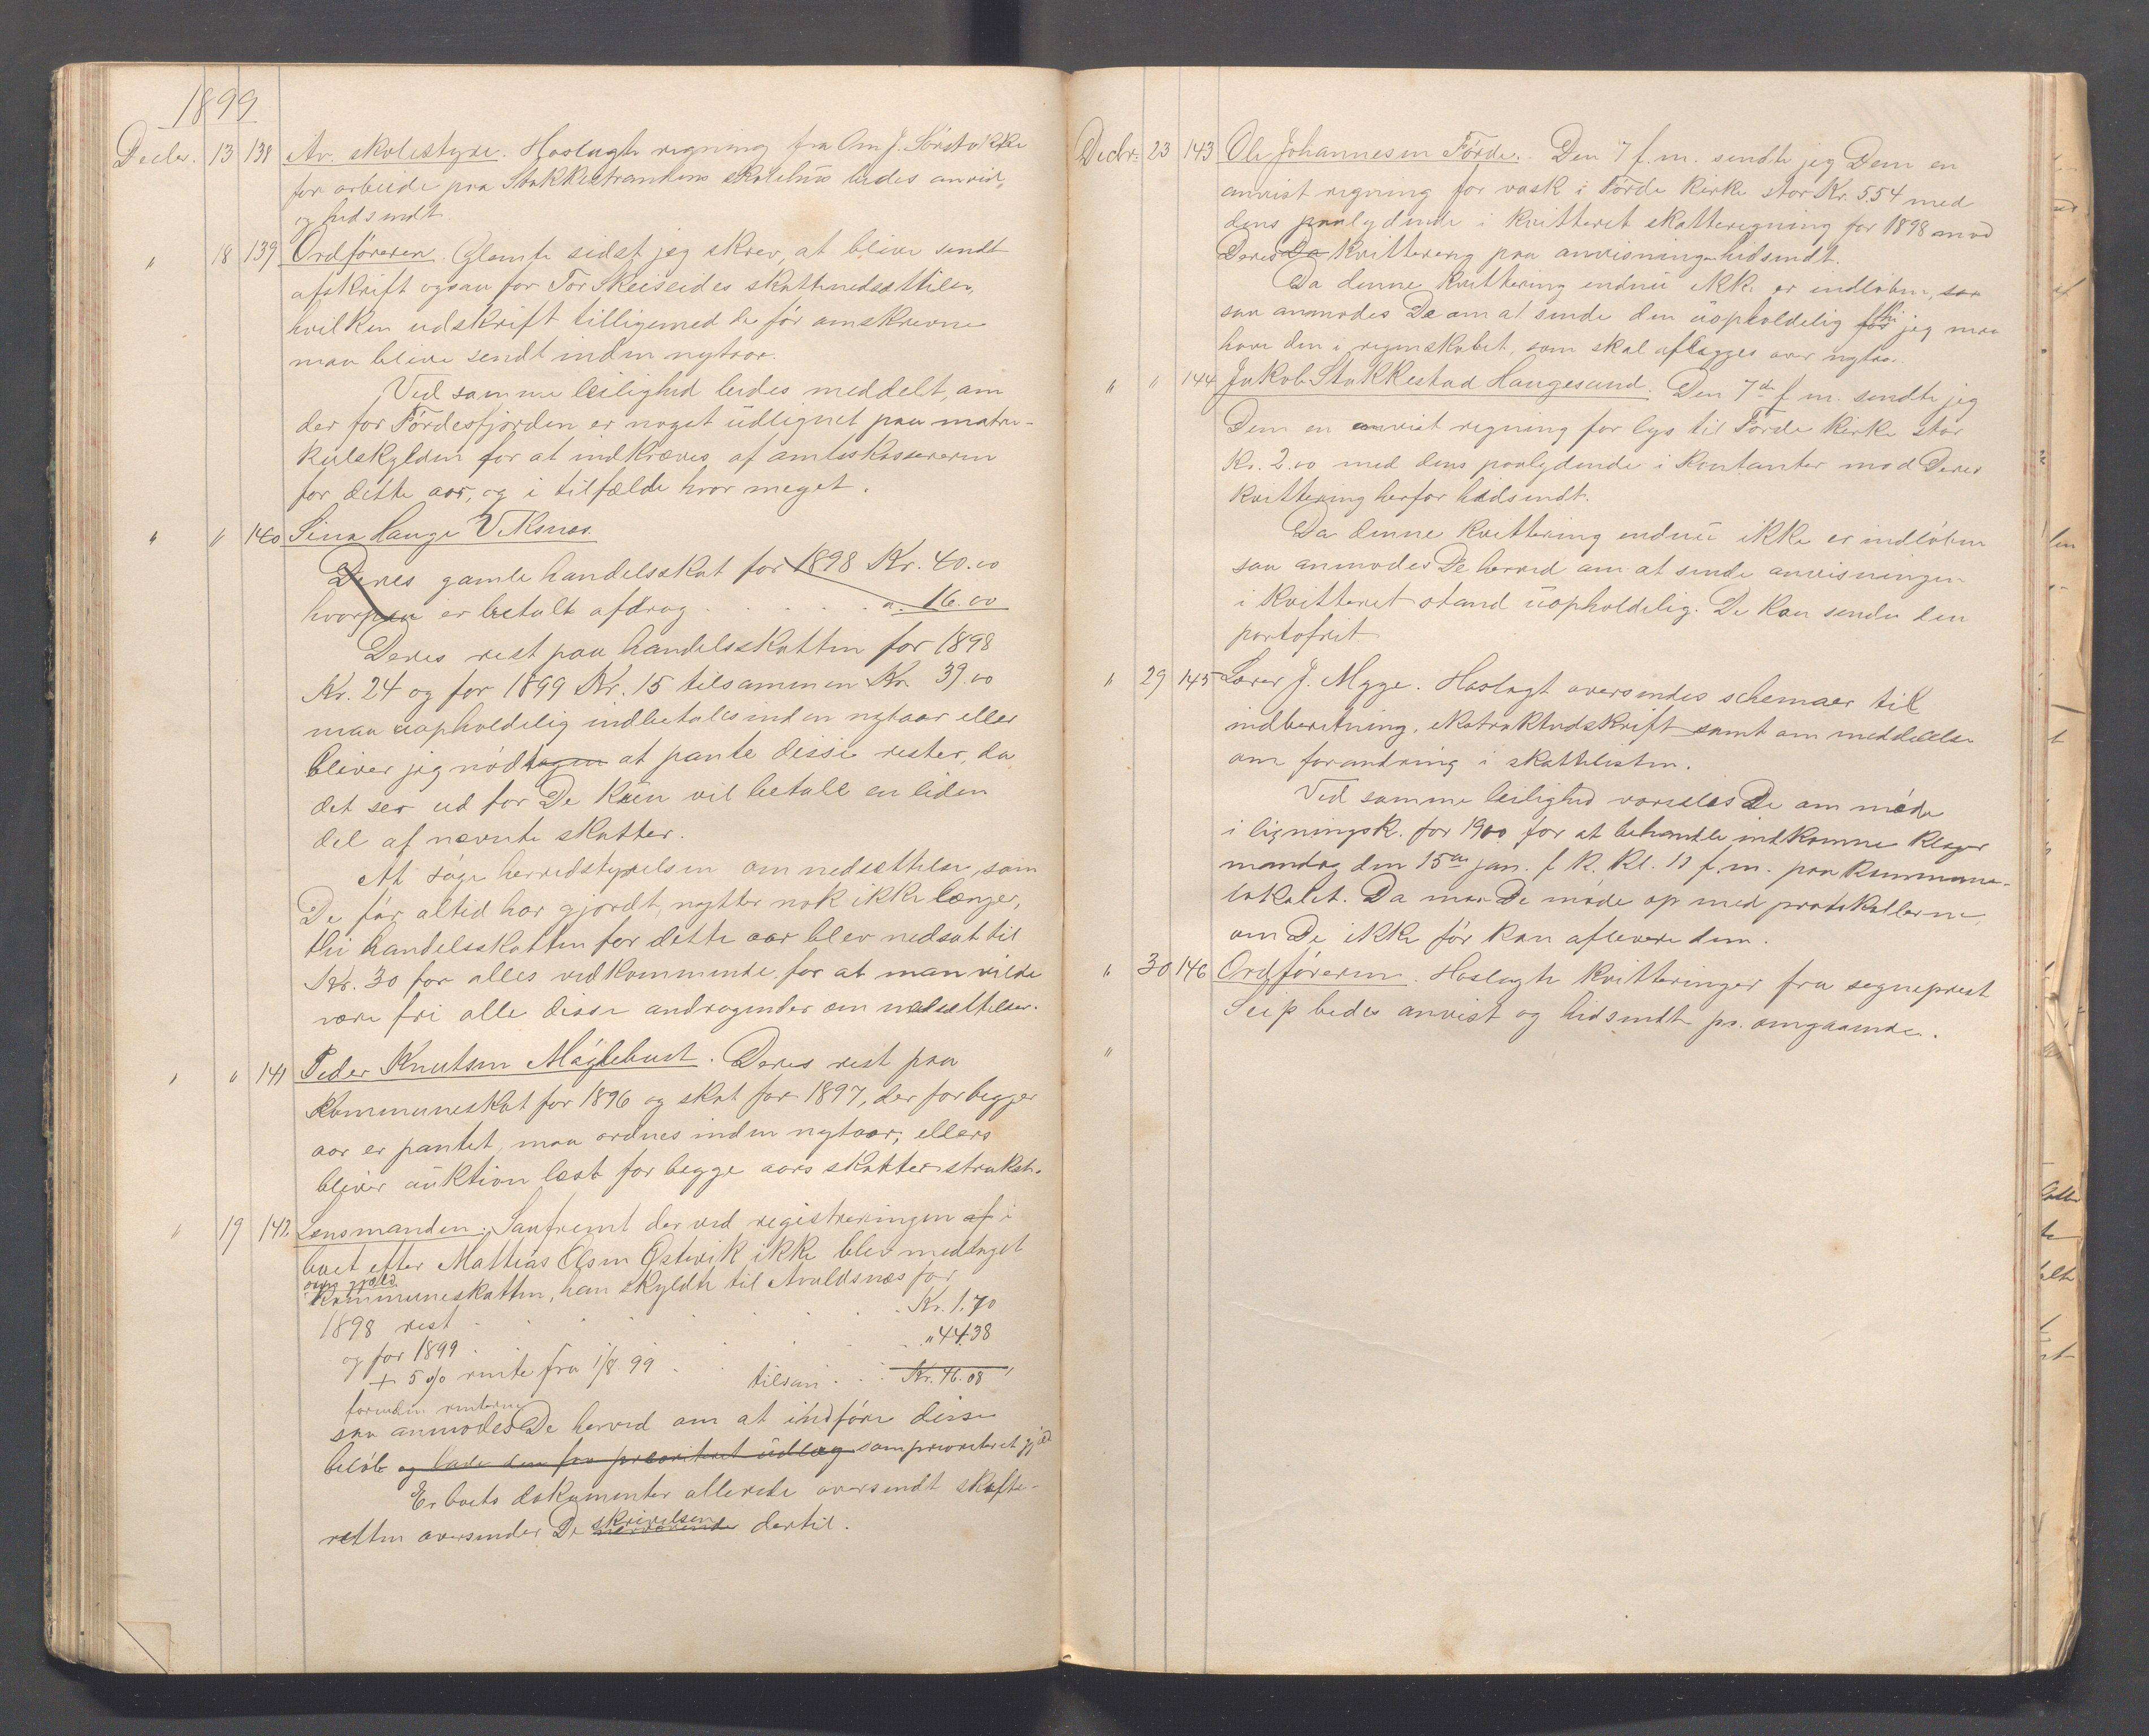 1899
Decbr. 13 138 Av. skolestyre. Hoslagte regning fra Om J. Sørstokke
for arbeide paa Stokkestrandens skolehus bedes anvist
og hidsendt.
" 18 139 Ordføreren. Glemte sidst jeg skrev, at blive sendt
afskrift ogsaa for Tor Skeiseides skattenedsættelse,
hvilken udskrift tilligemed de før omskrevne
maa blive sendt inden nytaar.
Ved samme leilighed bedes meddelt, om
der for Førdesfjorden er noget udlignet paa matri-
kulskylden for at indkræves af amtskassereren
for dette aar, og i tilfælde hvor meget.
" " 140 Sina Hauge Viksnes.
Deres gamle handelsskat for 1898 Kr. 40.00
hvorpaa er betalt afdrag . . . . . " 16.00
Deres rest paa handelsskatten for 1898
Kr. 24 og for 1899 Kr. 15 tilsammen Kr. 39.00
maa uopholdelig indbetales inden nytaar eller
bliver jeg nødtagen at pante disse rester, da
det ser ud for De kun vil betale en liden
del af nævnte skatter.
At søge herredstyrelsen om nedsættelse, som
De før altid har gjordt, nytter nok ikke længer,
thi handelsskatten for dette aar blev nedsat til
Kr. 30 for alles vedkommende for at man vilde
være fri alle disse andragender om nedsættelser.
" " 141 Peder Knutsen Møglebust. Deres rest paa
kommuneskat for 1896 og skat for 1897, der for begge
aar er pantet, maa ordnes inden nytaar, ellers
bliver auktion læst for begge aars skatter straks.
" 19 142. Lensmanden. Saafremt der ved registreringen af i
boet efter Mattias Olsen Østevik ikke blev medtaget
som gjæld
kommuneskatten, han skyldte til Avaldsnes for
1898 rest . . . . . . . Kr. 1.70
og for 1899 . . . . . . " 44.38
+ 5 % rente fra 1/8 99 . . tilsam . . Kr. 46.08
foruden renterne
saa anmodes De herved om at indføre disse
beløb og lade dem faa prioritert udlæg som prioriteret gjæld
Er boets dokumenter allerede oversendt skifte-
retten oversender De skrivelsen nærværende dertil.
Decbr. 23 143 Ole Johannesen Førde. Den 7 f.m. sendte jeg Dem en
anvist regning for vask i Førde kirke stor Kr. 5.54 med
dens paalydende i kvitteret skatteregning for 1898 mod
Deres Da kvittering paa anvisningen hidsendt.
Da denne kvittering endnu ikke er indløben, saa
saa anmodes De om at sende den uopholdelig for thi jeg maa
have den i regnskabet, som skal aflægges over nytaar.
" " 144 Jakob Stokkestad Haugesund. Den 7de f.m. sendte jeg
Dem en anvist regning for lys til Førde kirke stor
Kr. 2.00 med dens paalydende i kontanter mod Deres
kvittering herfor hidsendt.
Da denne kvittering endnu ikke er indløben
saa anmodes De herved om at sende anvisningen
i kvitteret stand uopholdelig. De kan sende den
portofrit.
" 29 145 Lærer J. Mygge. Hoslagt oversendes schemaer til
indberetning, ekstraktudskrift samt om meddelelse
om forandring i skattelisten.
Ved samme leilighed varsles De om møde
i ligningsk. for 1900 for at behandle indkomne klager
mandag den 15de jan. f. k. kl. 10 f.m. paa kommune-
lokalet. Da maa De møde op med protokollerne
om De ikke før kan aflevere dem.
" 30 146 Ordføreren. Hoslagte kvitteringer fra sogneprest
Seip bedes anvist og hidsendt pr. omgaaende.
"